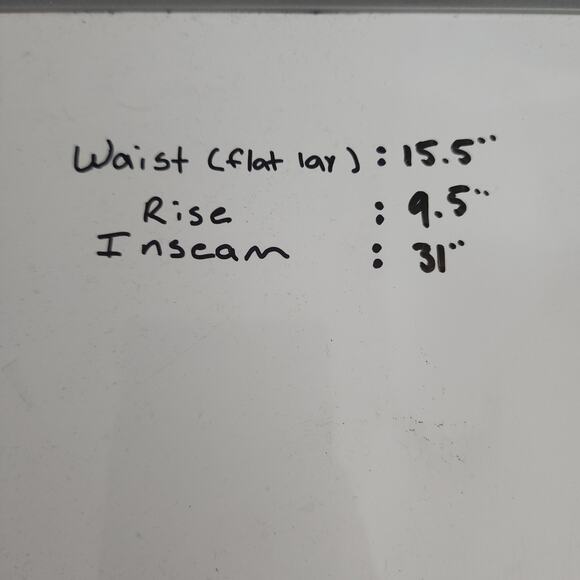 Waist (flat lay) : 15.5"
Rise : 9.5"
Inseam : 31"